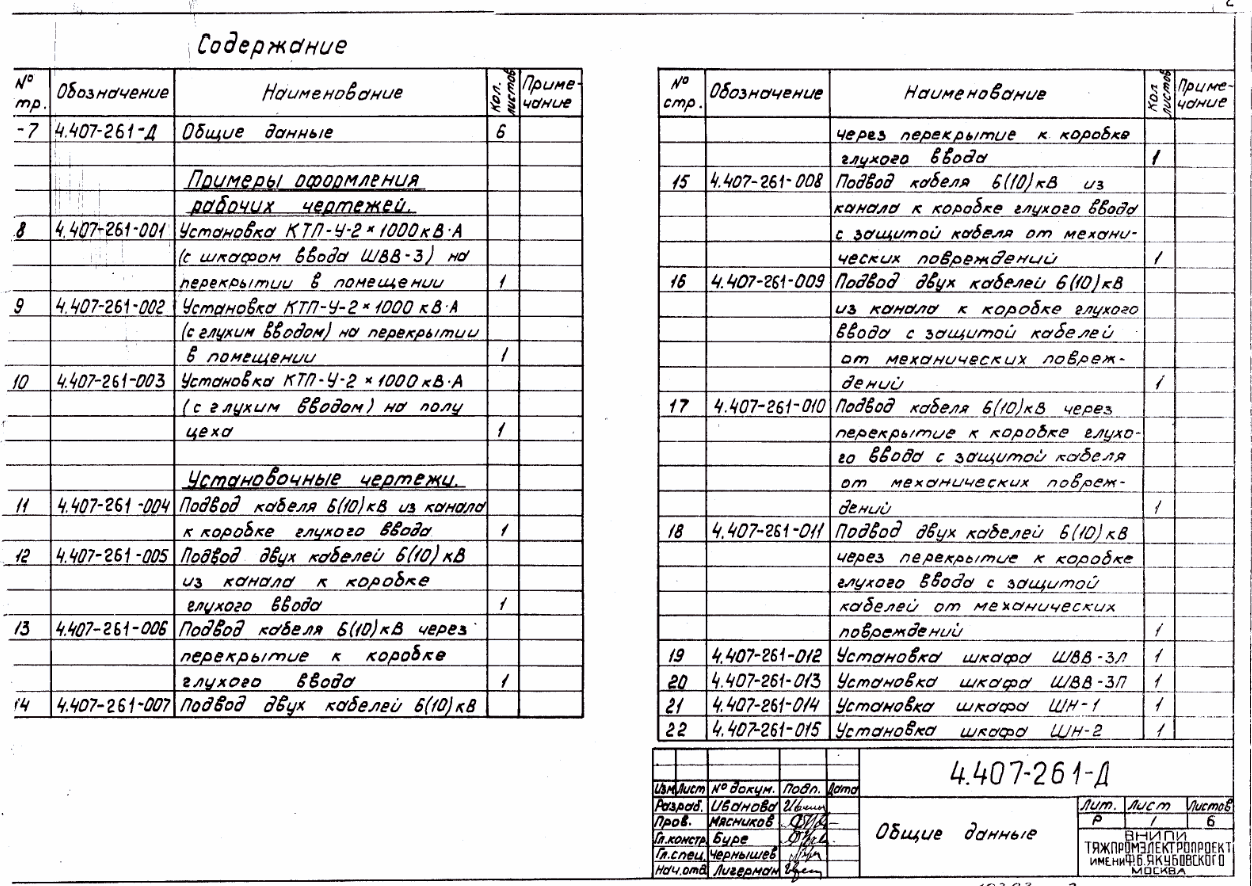 2
Содержание
№ тр. Обозначение Наименование Кол. листов Приме-чание
-7 4.407-261-Д Общие данные 6
Примеры оформления
рабочих чертежей.
8 4.407-261-001 Установка КТП-У-2×1000кВ·А
(с шкафом ввода ШВВ-3) на
перекрытии в помещении 1
9 4.407-261-002 Установка КТП-У-2×1000 кВ·А
(с глухим вводом) на перекрытии
в помещении 1
10 4.407-261-003 Установка КТП-У-2×1000 кВ·А
(с глухим вводом) на полу
цеха 1
Установочные чертежи.
11 4.407-261-004 Подвод кабеля 6(10)кВ из канала
к коробке глухого ввода 1
12 4.407-261-005 Подвод двух кабелей 6(10)кВ
из канала к коробке
глухого ввода 1
13 4.407-261-006 Подвод кабеля 6(10)кВ через
перекрытие к коробке
глухого ввода 1
14 4.407-261-007 Подвод двух кабелей 6(10)кВ
№ стр. Обозначение Наименование Кол листов Приме-чание
через перекрытие к коробке
глухого ввода 1
15 4.407-261-008 Подвод кабеля 6(10)кВ из
канала к коробке глухого ввода
с защитой кабеля от механи-
ческих повреждений 1
16 4.407-261-009 Подвод двух кабелей 6(10)кВ
из канала к коробке глухого
ввода с защитой кабелей
от механических повреж-
дений 1
17 4.407-261-010 Подвод кабеля 6(10)кВ через
перекрытие к коробке глухо-
го ввода с защитой кабеля
от механических повреж-
дений 1
18 4.407-261-011 Подвод двух кабелей 6(10)кВ
через перекрытие к коробке
глухого ввода с защитой
кабелей от механических
повреждений 1
19 4.407-261-012 Установка шкафа ШВВ-3Л 1
20 4.407-261-013 Установка шкафа ШВВ-3П 1
21 4.407-261-014 Установка шкафа ШН-1 1
22 4.407-261-015 Установка шкафа ШН-2 1
4.407-261-Д
Изм Лист № докум. Подп. Дата
Разраб. Иванова
Пров. Мясников
Гл.констр. Буре
Гл.спец. Чернышев
Нач.отд. Лигерман
Общие данные
Лит. Лист Листов
Р 1 6
ВНИПИ
ТЯЖПРОМЭЛЕКТРОПРОЕКТ
ИМЕНИ Ф.Б.ЯКУБОВСКОГО
МОСКВА